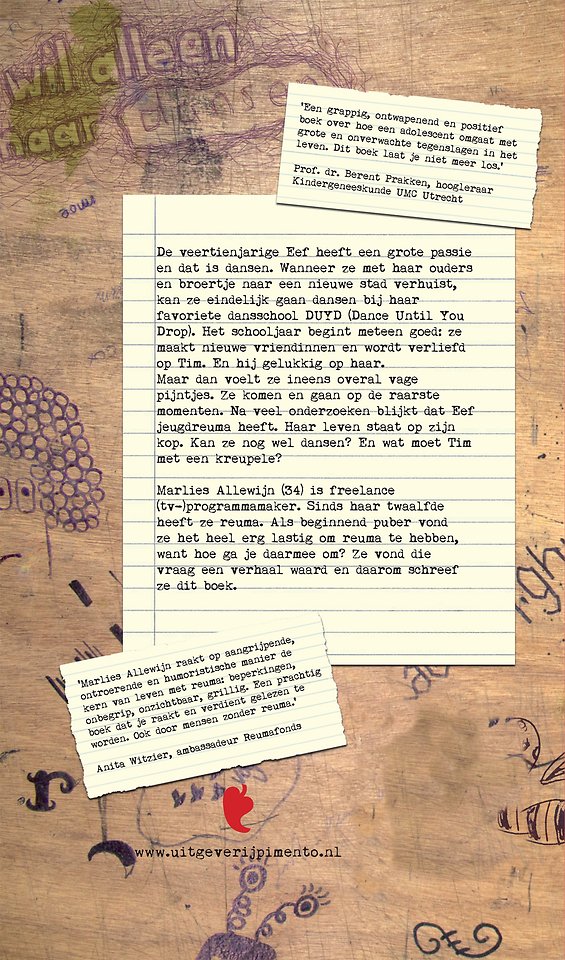 wil alleen
maar dansen
'Een grappig, ontwapenend en positief
boek over hoe een adolescent omgaat met
grote en onverwachte tegenslagen in het
leven. Dit boek laat je niet meer los.'
Prof. dr. Berent Prakken, hoogleraar
Kindergeneeskunde UMC Utrecht
De veertienjarige Eef heeft een grote passie
en dat is dansen. Wanneer ze met haar ouders
en broertje naar een nieuwe stad verhuist,
kan ze eindelijk gaan dansen bij haar
favoriete dansschool DUYD (Dance Until You
Drop). Het schooljaar begint meteen goed: ze
maakt nieuwe vriendinnen en wordt verliefd
op Tim. En hij gelukkig op haar.
Maar dan voelt ze ineens overal vage
pijntjes. Ze komen en gaan op de raarste
momenten. Na veel onderzoeken blijkt dat Eef
jeugdreuma heeft. Haar leven staat op zijn
kop. Kan ze nog wel dansen? En wat moet Tim
met een kreupele?
Marlies Allewijn (34) is freelance
(tv-)programmamaker. Sinds haar twaalfde
heeft ze reuma. Als beginnend puber vond
ze het heel erg lastig om reuma te hebben,
want hoe ga je daarmee om? Ze vond die
vraag een verhaal waard en daarom schreef
ze dit boek.
'Marlies Allewijn raakt op aangrijpende,
ontroerende en humoristische manier de
kern van leven met reuma: beperkingen,
onbegrip, onzichtbaar, grillig. Een prachtig
boek dat je raakt en verdient gelezen te
worden. Ook door mensen zonder reuma.'
Anita Witzier, ambassadeur Reumafonds
www.uitgeverijpimento.nl